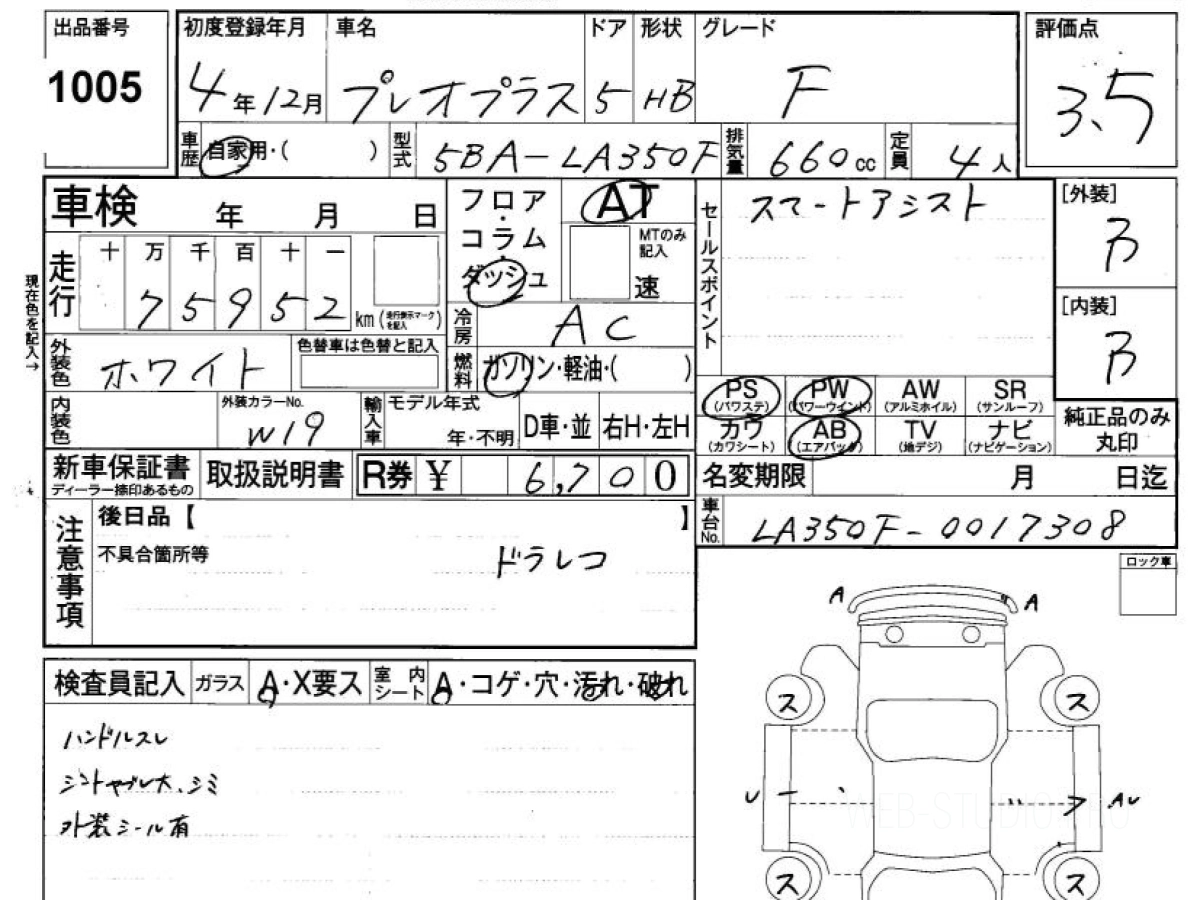 出品番号 初度登録年月 車名 ドア 形状 グレード 評価点
1005 4年12月 プレオプラス 5 HB F 3.5
車歴 自家用・( ) 型式 5BA-LA350F 排気量 660cc 定員 4人
車検 年 月 日
フロア・コラム・ダッシュ
AT
MTのみ記入
速
セールスポイント
スマートアシスト
[外装]
B
[内装]
B
現在色を記入→
走行
十 万 千 百 十 一
7 5 9 5 2 km (走行表示マークを記入)
冷房 AC
外装色 ホワイト
色替車は色替と記入
燃料 ガソリン・軽油・( )
PS (パワステ) PW (パワーウインド) AW (アルミホイル) SR (サンルーフ)
カワ (カワシート) AB (エアバッグ) TV (地デジ) ナビ (ナビゲーション)
純正品のみ丸印
内装色
外装カラーNo.
W19
輸入車
モデル年式
年・不明
D車・並 右H・左H
新車保証書
ディーラー捺印あるもの
取扱説明書
R券 ¥ 6,700
名変期限 月 日迄
車台No. LA350F-0017308
注意事項
後日品【 】
不具合箇所等
ドラレコ
ロック車
A A
検査員記入 ガラス A・X要ス 室内シート A・コゲ・穴・汚れ・破れ
ハンドルスレ
シートヤブレ大、シミ
外装シール有
ス ス
U AU
WEB-STUDIO.PRO
ス ス